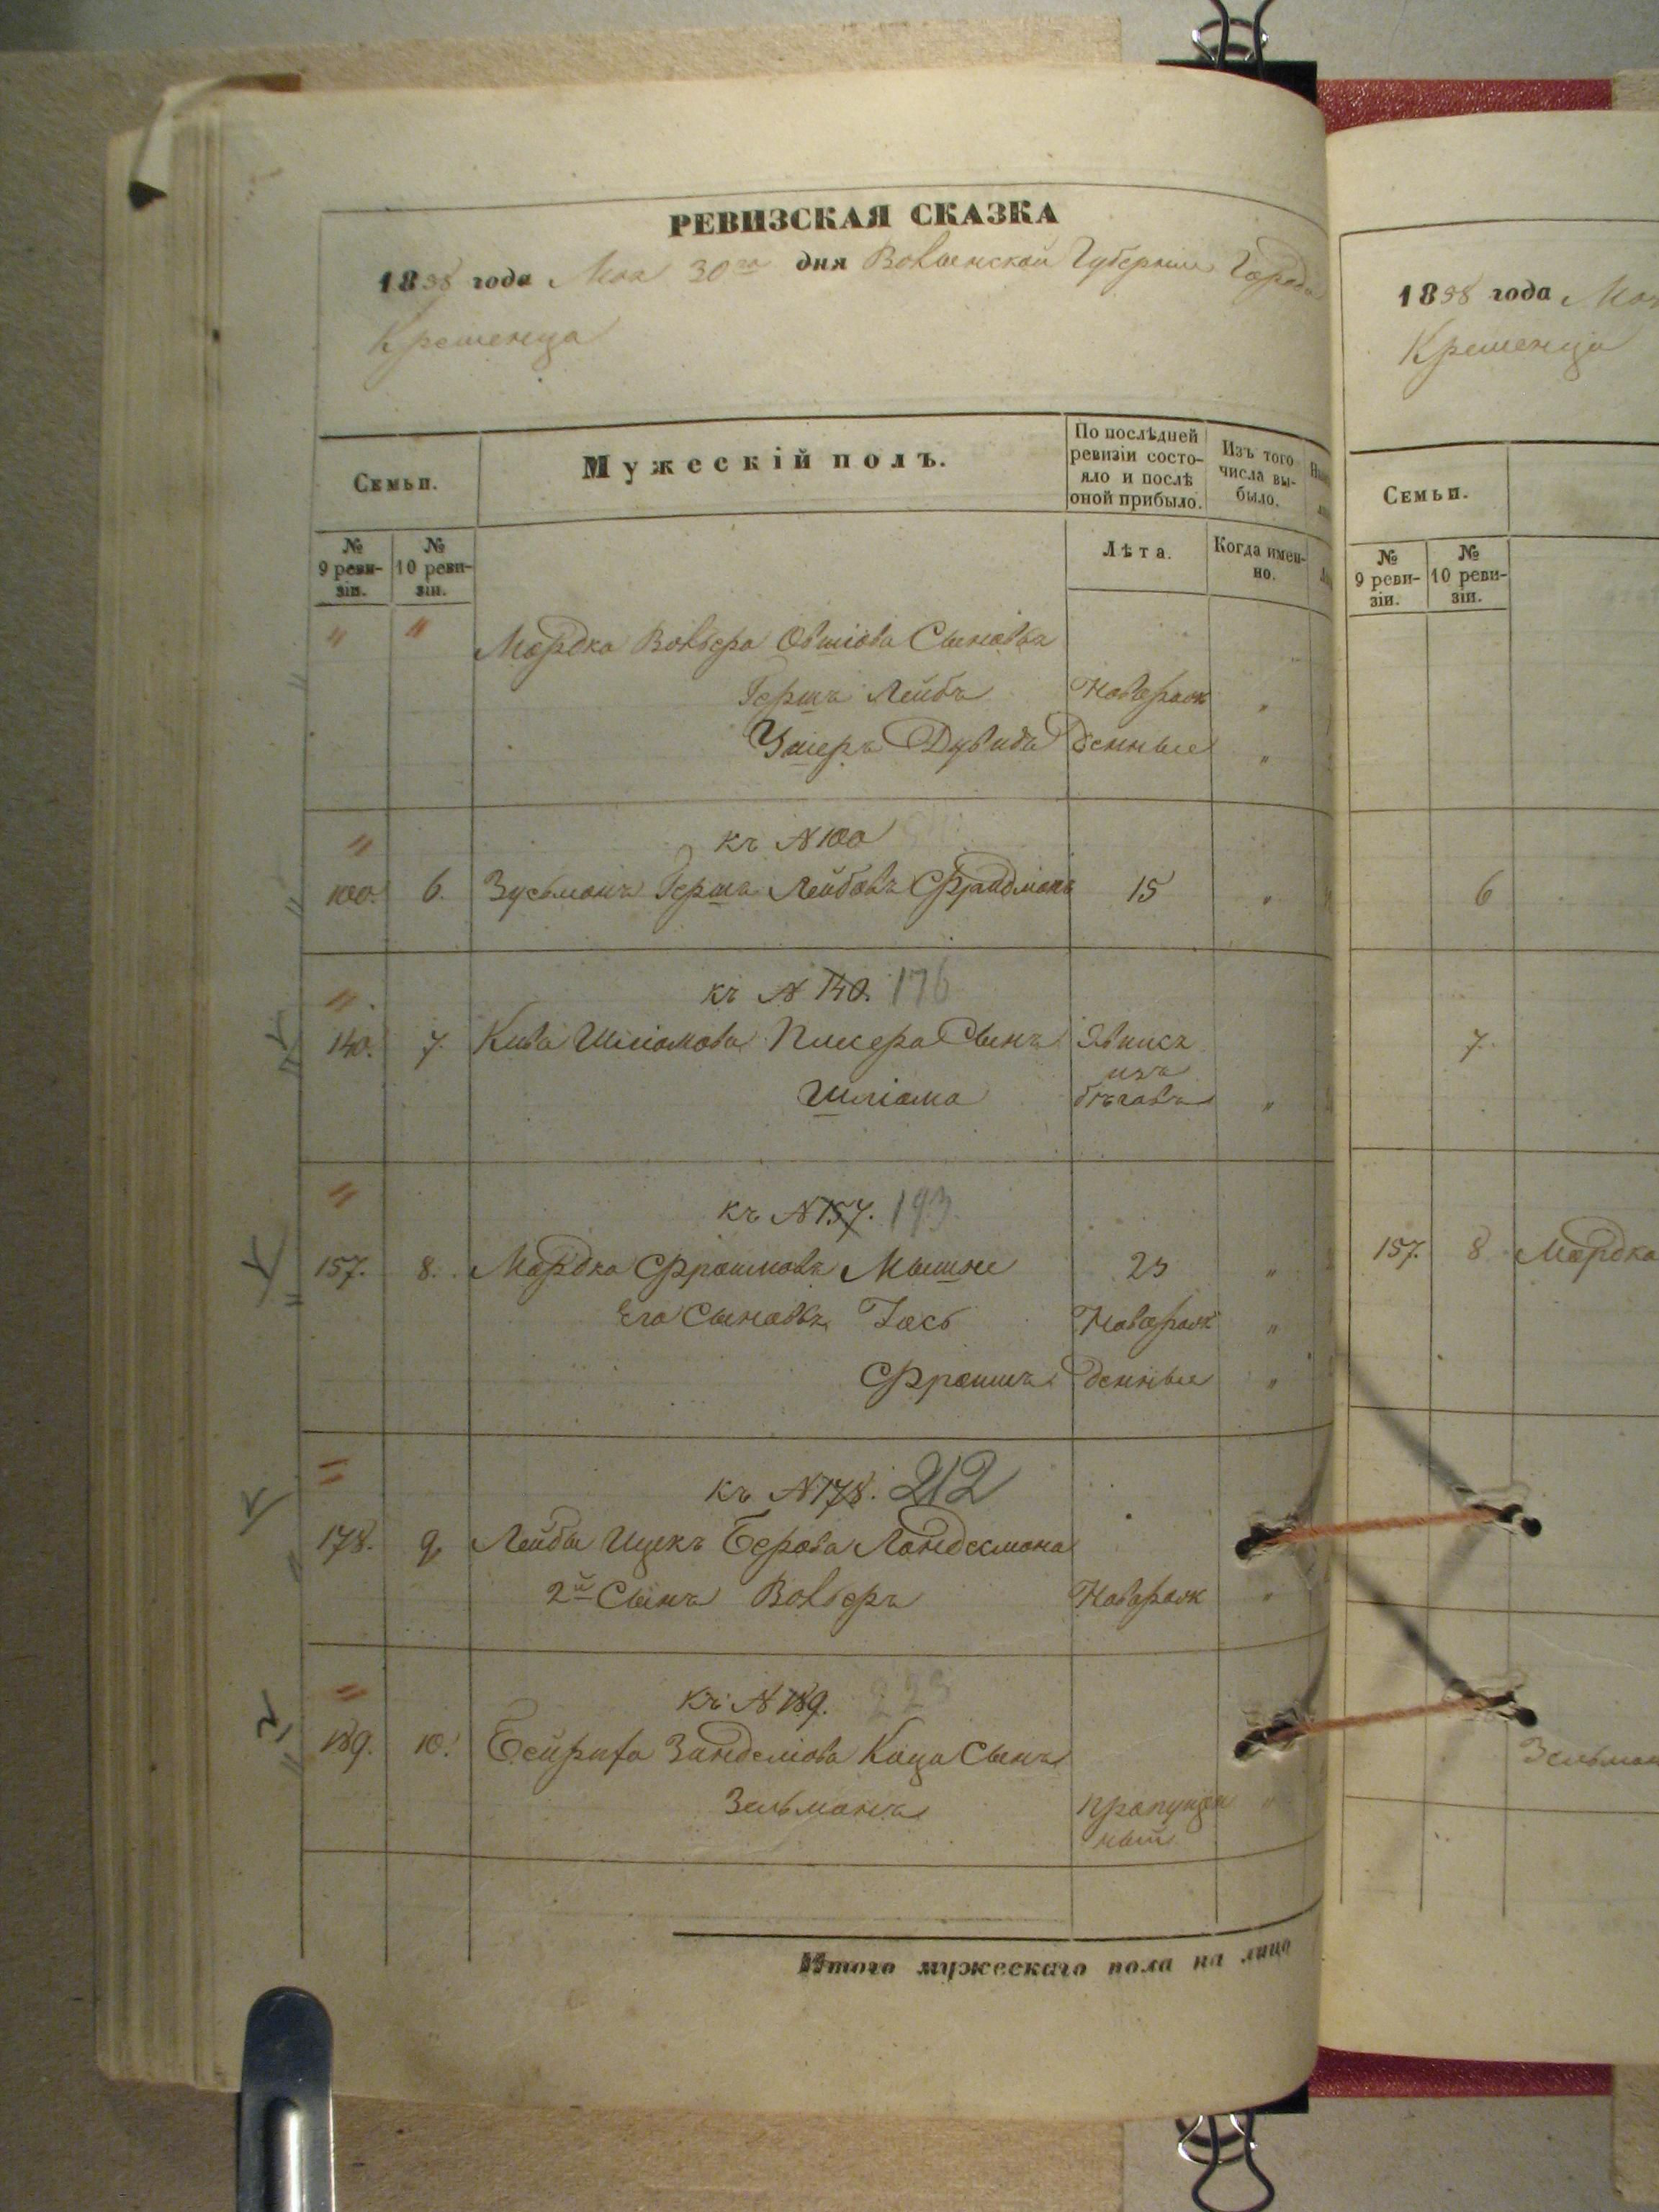 РЕВИЗСКАЯ СКАЗКА
1858 года Мая 30го дня Волынской Губерніи Города
Кременца
Семьи.
Мужескій полъ.
По послѣдней ревизіи состо-
яло и послѣ
оной прибыло.
Изъ того
числа вы-
было.
№
9 реви-
зіи.
№
10 реви-
зіи.
Лѣта.
Когда имен-
но.
" " Мордка Вольфа Овшіова Сыновья
Гершъ Лейба Новорож "
Ушеръ Дувидъ денные "
къ №100
100. 6. Зусьманъ Гершъ Лейбовъ Фрайдманъ 15 "
къ № 140. 176
140. 7. Кива Шліомова Пикера Сынъ Явился
изъ
Шліома бѣговъ "
къ №157. 193
157. 8. Мордко Фроимовъ Мышне 25 "
Его Сыновья Іось Новорож "
Фроимъ денные "
къ №178. 212
178. 9. Лейбы Ицекъ Берова Ландесмана
2й Сынъ Вольфъ Новорож "
къ №189. 223
189. 10. Зинделіова Каца Сынъ
Зельманъ пропущен "
ный
Итого мужескаго пола на лицо
1858 года Мая
Кременца
Семьи.
№
9 реви-
зіи.
№
10 реви-
зіи.
6
7.
157. 8 Мордка
Зельман